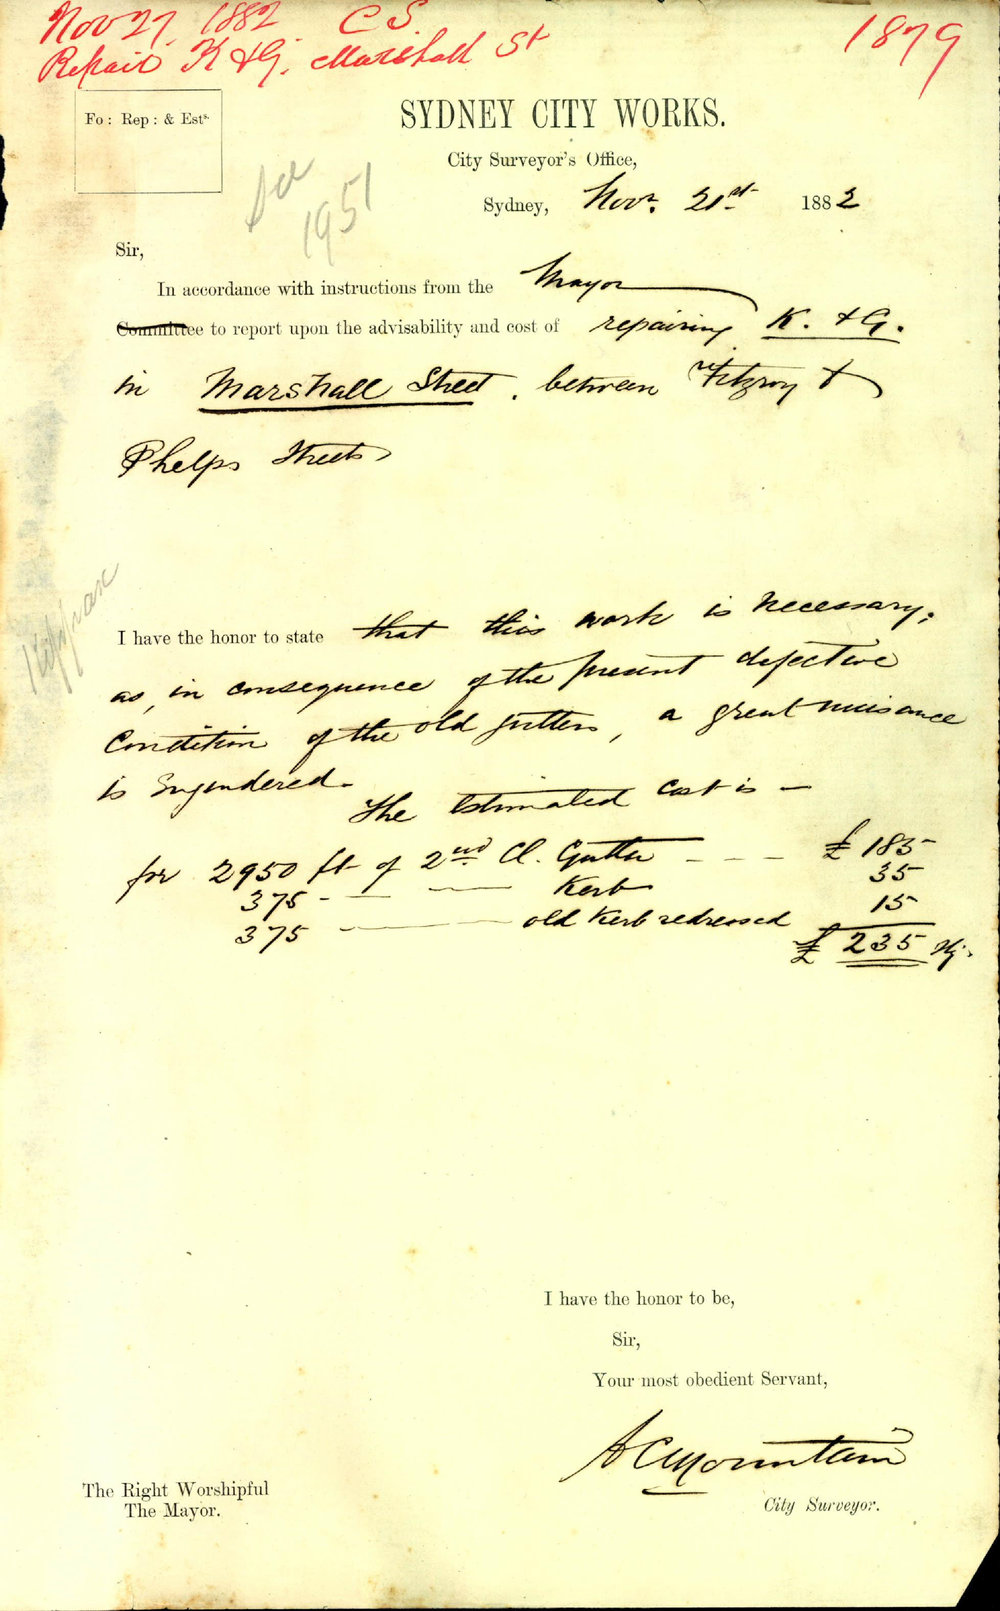 Nov 27, 1882 C S.
Repair K & G, Marshall St
1879
Fo: Rep: & Ests.
SYDNEY CITY WORKS.
City Surveyor's Office,
Sydney, Novr. 21st 1882
See
1951
Sir,
In accordance with instructions from the Mayor
Committee to report upon the advisability and cost of repairing K. & G.
in Marshall Street. between Fitzroy &
Phelps Streets
I have the honor to state that this work is necessary;
as, in consequence of the present defective
condition of the old gutters, a great nuisance
is engendered.
The estimated cost is —
for 2950 ft of 2nd Cl. Gutter - - - £ 185
375 - — — Kerb 35
375 — — old Kerb redressed 15
£ 235
I have the honor to be,
Sir,
Your most obedient Servant,
A C Mountain
City Surveyor.
The Right Worshipful
The Mayor.